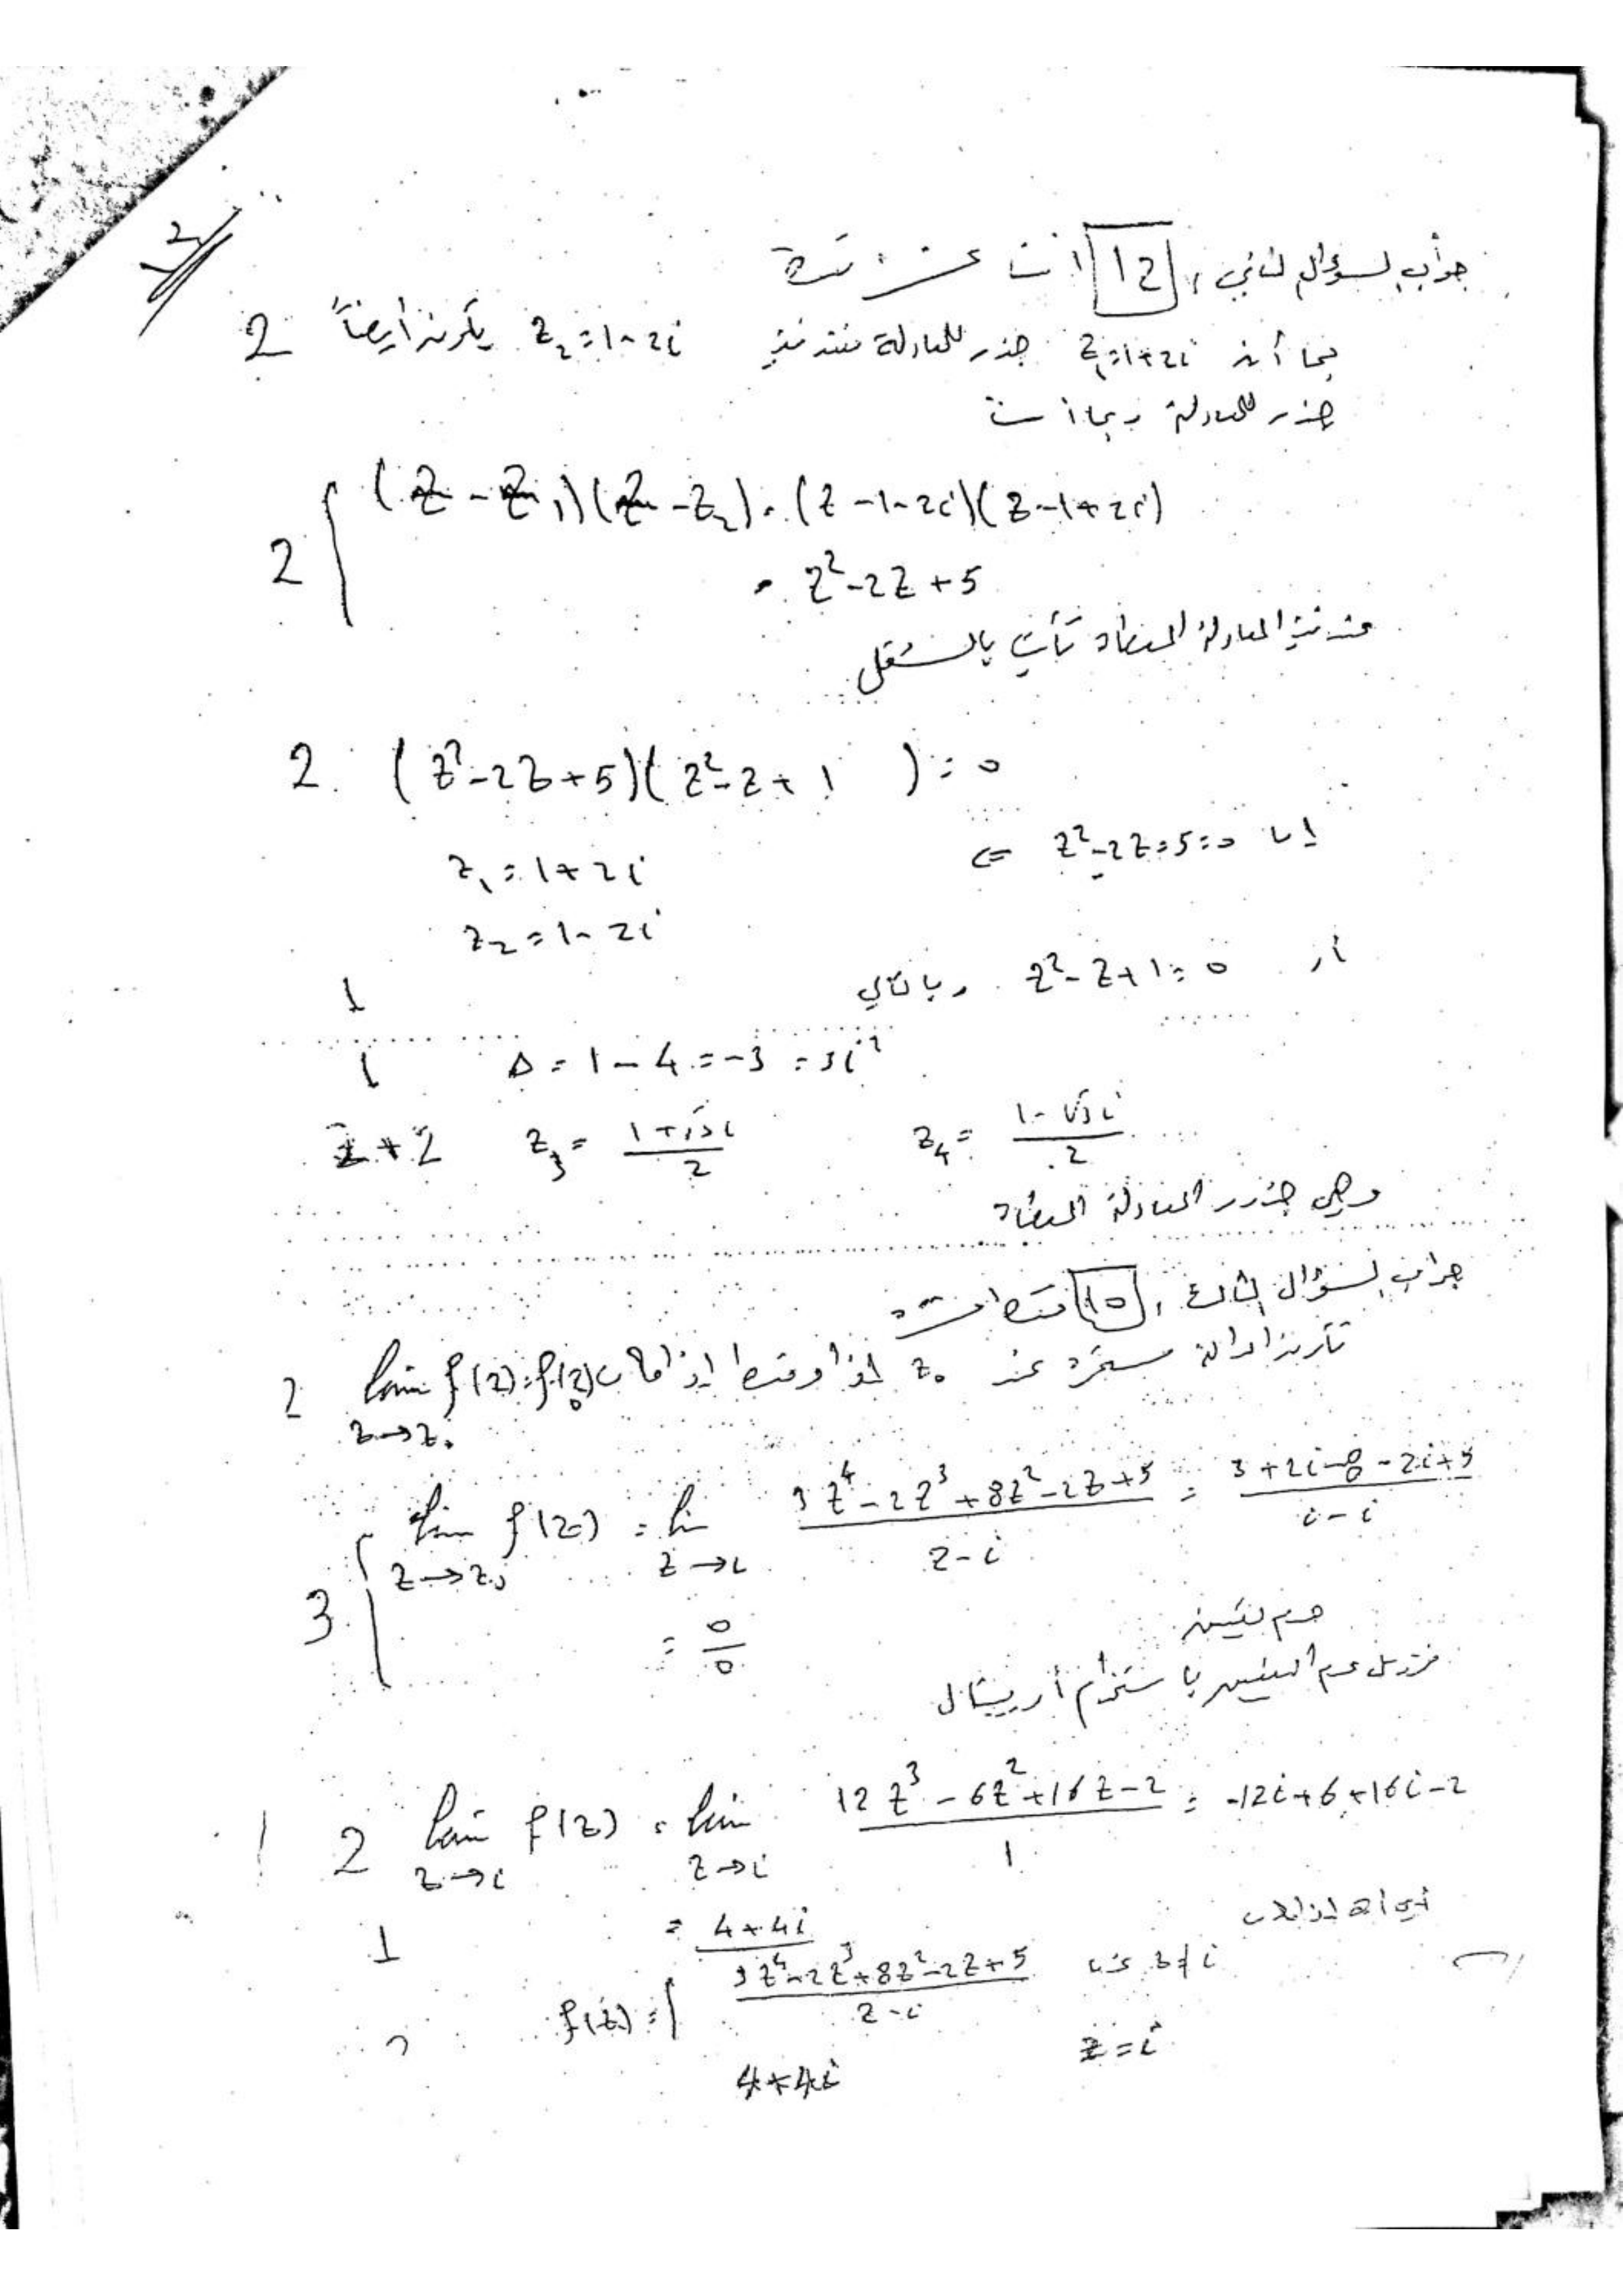 جواب السؤال الثاني ، 12 اثنتا عشرة درجة
بما أن z₁=1+2i جذر للمعادلة z₂=1-2i يكون أيضاً 2
جذر للمعادلة وبما أن
(z - z₁)(z - z₂) = (z-1-2i)(z-1+2i)
2 = z²-2z+5
المعادلة المعطاة تكتب بالشكل
2 (z²-2z+5)(z²-z+1) = 0
إما z²-2z+5=0 ⇐
z₁=1+2i
z₂=1-2i
أو z²-z+1=0 وبالتالي
1
1 Δ = 1-4 = -3 = 3i²
2+2 z₃ = (1+√3i)/2 z₄ = (1-√3i)/2
وهي جذور المعادلة المعطاة
جواب السؤال الثالث ، 10
تكون الدالة مستمرة عند z₀ إذا وفقط إذا كان lim f(z)=f(z₀) 2
z→z₀
lim f(z) = lim (3z⁴-2z³+8z²-2z+5)/(z-i) = (3+2i-8-2i+5)/(i-i)
z→z₀ z→i
3 = 0/0
عدم تعيين
نزيل عدم التعيين باستخدام أوبيتال
2 lim f(z) = lim (12z³-6z²+16z-2)/1 = -12i+6+16i-2
z→i z→i
1 = 4+4i
f(z) = { (3z⁴-2z³+8z²-2z+5)/(z-i) z≠i
4+4i z=i